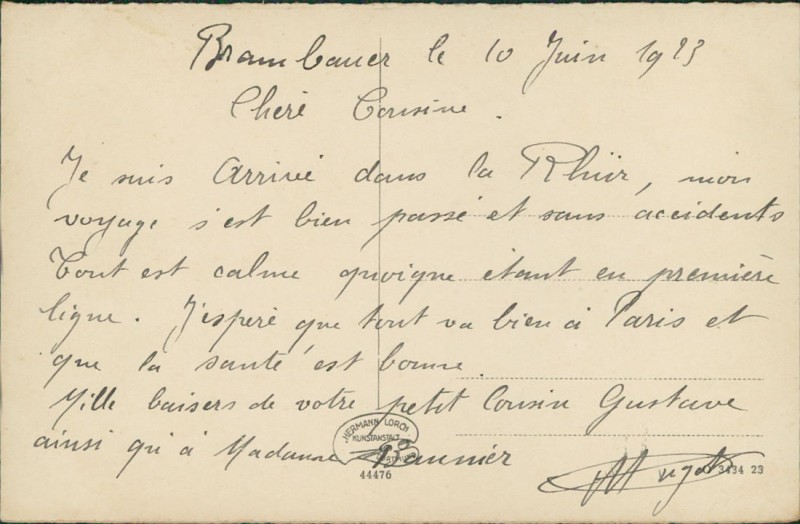 Brambauer le 10 Juin 1923
Cheré Cousine.
Je suis Arrivé dans la Rhür, mon
voyage s'est bien passé et sans accidents
Tout est calme quoique étant en première
ligne. J'esperé que tout va bien à Paris et
que la santé est bonne.
Mille baisers de votre petit Cousin Gustave
HERMANN LORCH
KUNSTANSTALT
DORTMUND
ainsi qu'à Madame Baunier
44476
3434 23